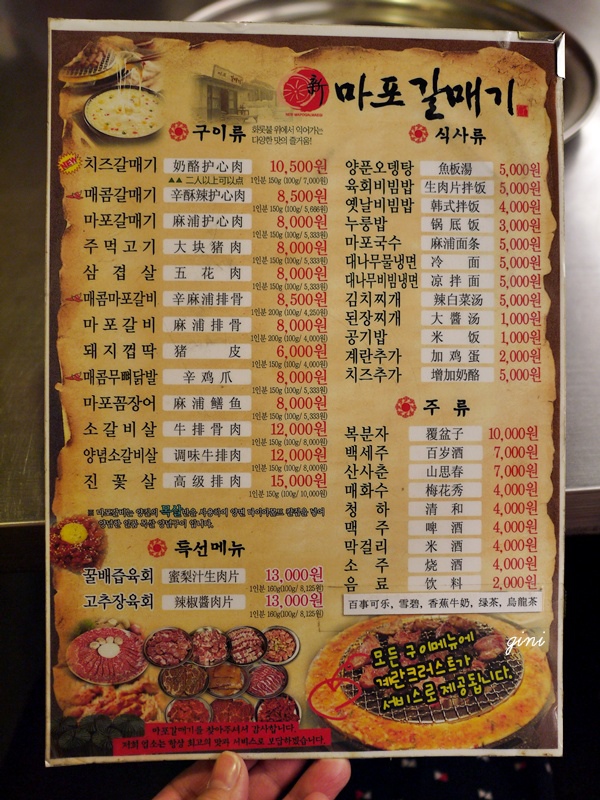 新 마포갈매기
구이류 화롯불 위에서 익어가는
다양한 맛의 즐거움!
NEW
치즈갈매기 奶酪护心肉 10,500원
▲▲ 二人以上可以点 1인분 150g (100g/ 7,000원)
매콤갈매기 辛酥辣护心肉 8,500원
1인분 150g (100g/ 5,666원)
마포갈매기 麻浦护心肉 8,000원
1인분 150g (100g/ 5,333원)
주먹고기 大块猪肉 8,000원
1인분 150g (100g/ 5,333원)
삼겹살 五花肉 8,000원
1인분 150g (100g/ 5,333원)
매콤마포갈비 辛麻浦排骨 8,500원
1인분 200g (100g/ 4,250원)
마포갈비 麻浦排骨 8,000원
1인분 200g (100g/ 4,000원)
돼지껍딱 猪皮 6,000원
1인분 150g (100g/ 4,000원)
매콤무뼈닭발 辛鸡爪 8,000원
1인분 150g (100g/ 5,333원)
마포꼼장어 麻浦鳝鱼 8,000원
1인분 150g (100g/ 5,333원)
소갈비살 牛排骨肉 12,000원
1인분 150g (100g/ 8,000원)
양념소갈비살 调味牛排肉 12,000원
1인분 150g (100g/ 8,000원)
진꽃살 高级排肉 15,000원
1인분 150g (100g/ 10,000원)
특선메뉴
꿀배즙육회 蜜梨汁生肉片 13,000원
1인분 160g(100g/ 8,125원)
고추장육회 辣椒醬肉片 13,000원
1인분 160g(100g/ 8,125원)
식사류
양푼오뎅탕 魚板湯 5,000원
육회비빔밥 生肉片拌饭 5,000원
옛날비빔밥 韩式拌饭 4,000원
누룽밥 锅底饭 3,000원
마포국수 麻浦面条 5,000원
대나무물냉면 冷面 5,000원
대나무비빔냉면 凉拌面 5,000원
김치찌개 辣白菜汤 5,000원
된장찌개 大醬汤 1,000원
공기밥 米饭 1,000원
계란추가 加鸡蛋 2,000원
치즈추가 增加奶酪 5,000원
주류
복분자 覆盆子 10,000원
백세주 百岁酒 7,000원
산사춘 山思春 7,000원
매화수 梅花秀 4,000원
청하 清和 4,000원
맥주 啤酒 4,000원
막걸리 米酒 4,000원
소주 烧酒 4,000원
음료 饮料 2,000원
百事可乐, 雪碧, 香蕉牛奶, 绿茶, 烏龍茶
gini
모든 구이메뉴에
계란크러스트가
서비스로 제공됩니다.
마포갈매기를 찾아주셔서 감사합니다.
저희 업소는 항상 최고의 맛과 서비스로 보답하겠습니다.